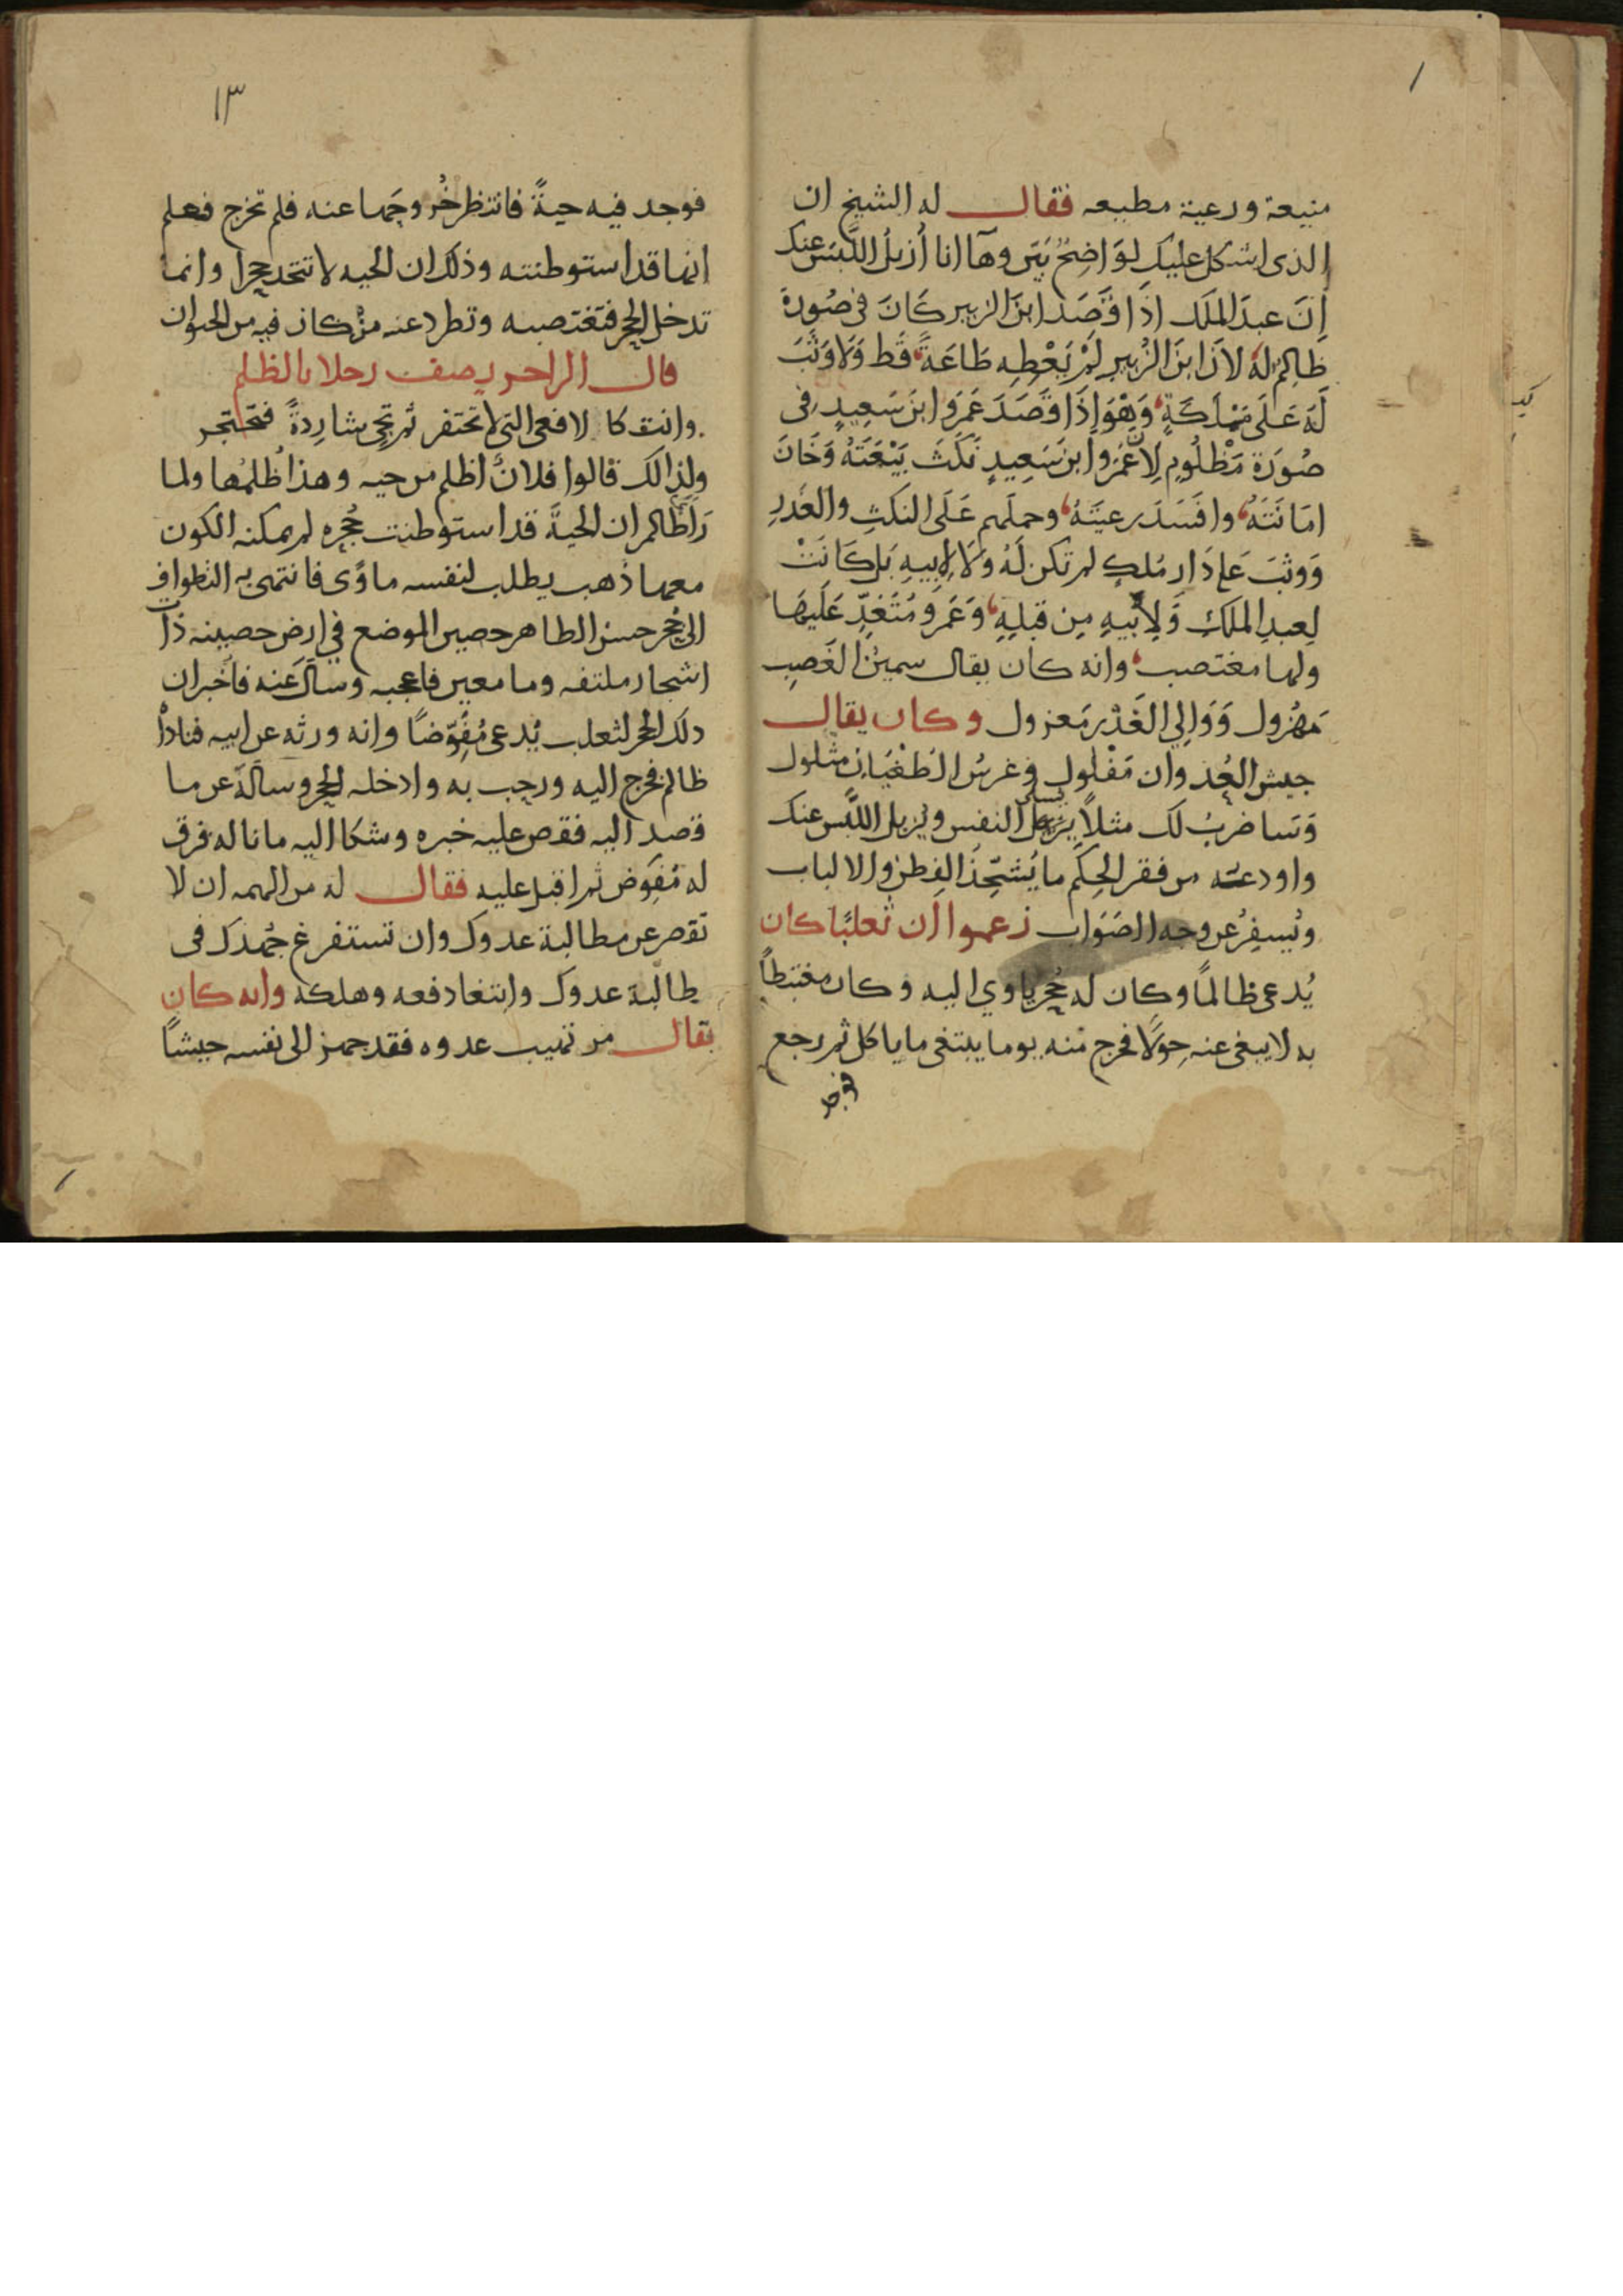 منيعة ورعية مطيعه فقال له الشيخ ان
الذى اشكل عليك لوَاضِحٌ بَيّن وهَآ انا أزيلُ اللَّبسَ عنك
اِنَ عبدَ الملَك اذَا قَصَدَ ابنَ الزبير كَانَ فى صُورَة
ظالِمٍ لهُ لانَ ابنَ الزُبيرِ لَمْ يَعْطِهِ طَاعَةً قَط وَلَا وَثَبَ
لَهُ عَلَى مَمْلَكَةٍ وَهْوَ اِذَا قَصَدَ عَمَرَو ابنَ سَعِيدٍ فى
صُورَة مَظْلُومٍ لِاَنَّ عَمَرو ابنَ سَعِيدٍ نَكَثَ بَيْعَتَهُ وَخَانَ
امَانَتَهُ وافسَدَ رعيَّتَهُ وحملَهم عَلَى النكثِ والغَدرِ
وَوثبَ عَلى دَار مُلكٍ لم تكن لَهُ وَلَا لِابيهِ بَل كَانَتْ
لِعبدِ الملكِ وَلِابيهِ مِن قبلِهِ وَعَمَرو مُتَعَدٍّ عَلَيهَا
ولها مغتصب وانه كان يقال سمينُ الغَصبِ
مَهْزُول وَوَالِي الغَدْرِ مَعزول وكان يقال
جيش العُدوان مَفْلول وغرسُ الطُغْيَانِ مثلول
وَسَاضربُ لك مثلاً يُسلى النفس ويزيل اللَّبس عنك
واودعته من فقر الحِكَم ما يُشحِّذُ الفِطن والالباب
ويُسفِرُ عن وجه الصَوَاب زعموا أن ثعلبًا كان
يُدعى ظالمًا وكان له جُحر ياوي اليه وكان مغتبطاً
به لا يبغى عنه حِوَلًا فخرج منه يوما يبتغى ما ياكل ثم رجع
فوجد
١٣
فوجد فيه حيةً فانتظر خُروجَها عنه فلم تخرج فعلم
انها قد استوطنته وذلك ان الحيه لا تتخد جحرا وانما
تدخل الجحر فتغتصبه وتطرد عنه من كان فيه من الحيوان
قال الراجز يصف رجلا بالظلم
وانت كالافعى التى لا تحتفر ثم تجى شارِدةً فتحتجر
ولذالك قالوا فلانٌ اظلم من حيه وهذا ظلمُها ولما
رَاَى ظالم ان الحيَّة قد استوطنت جُحره لم يمكنه الكون
معها ذهب يطلب لنفسه ماوًى فانتهى به التطواف
الى جُحر حسن الظاهر حصين الموضع في ارض حصينه ذات
اشجار ملتفه وما معين فاعجبه وسال عنه فاخبر ان
ذلك الجحر لثعلب يُدعى مُفَوِّضًا وانه ورثه عن ابيه فناداُ
ظالم فخرج اليه ورحب به وادخله الجحر وساله عن ما
قصد اليه فقص عليه خبره وشكا اليه ما ناله فرق
له مُفَوِّض ثم اقبل عليه فقال له من الهمه ان لا
تقصر عن مطالبة عدوك وان تستفرغ جُهدك فى
طالبة عدوك وابتغا دفعه وهلكه وانه كان
يقال من تهيب عدوه فقد جهز الى نفسه جيشًا